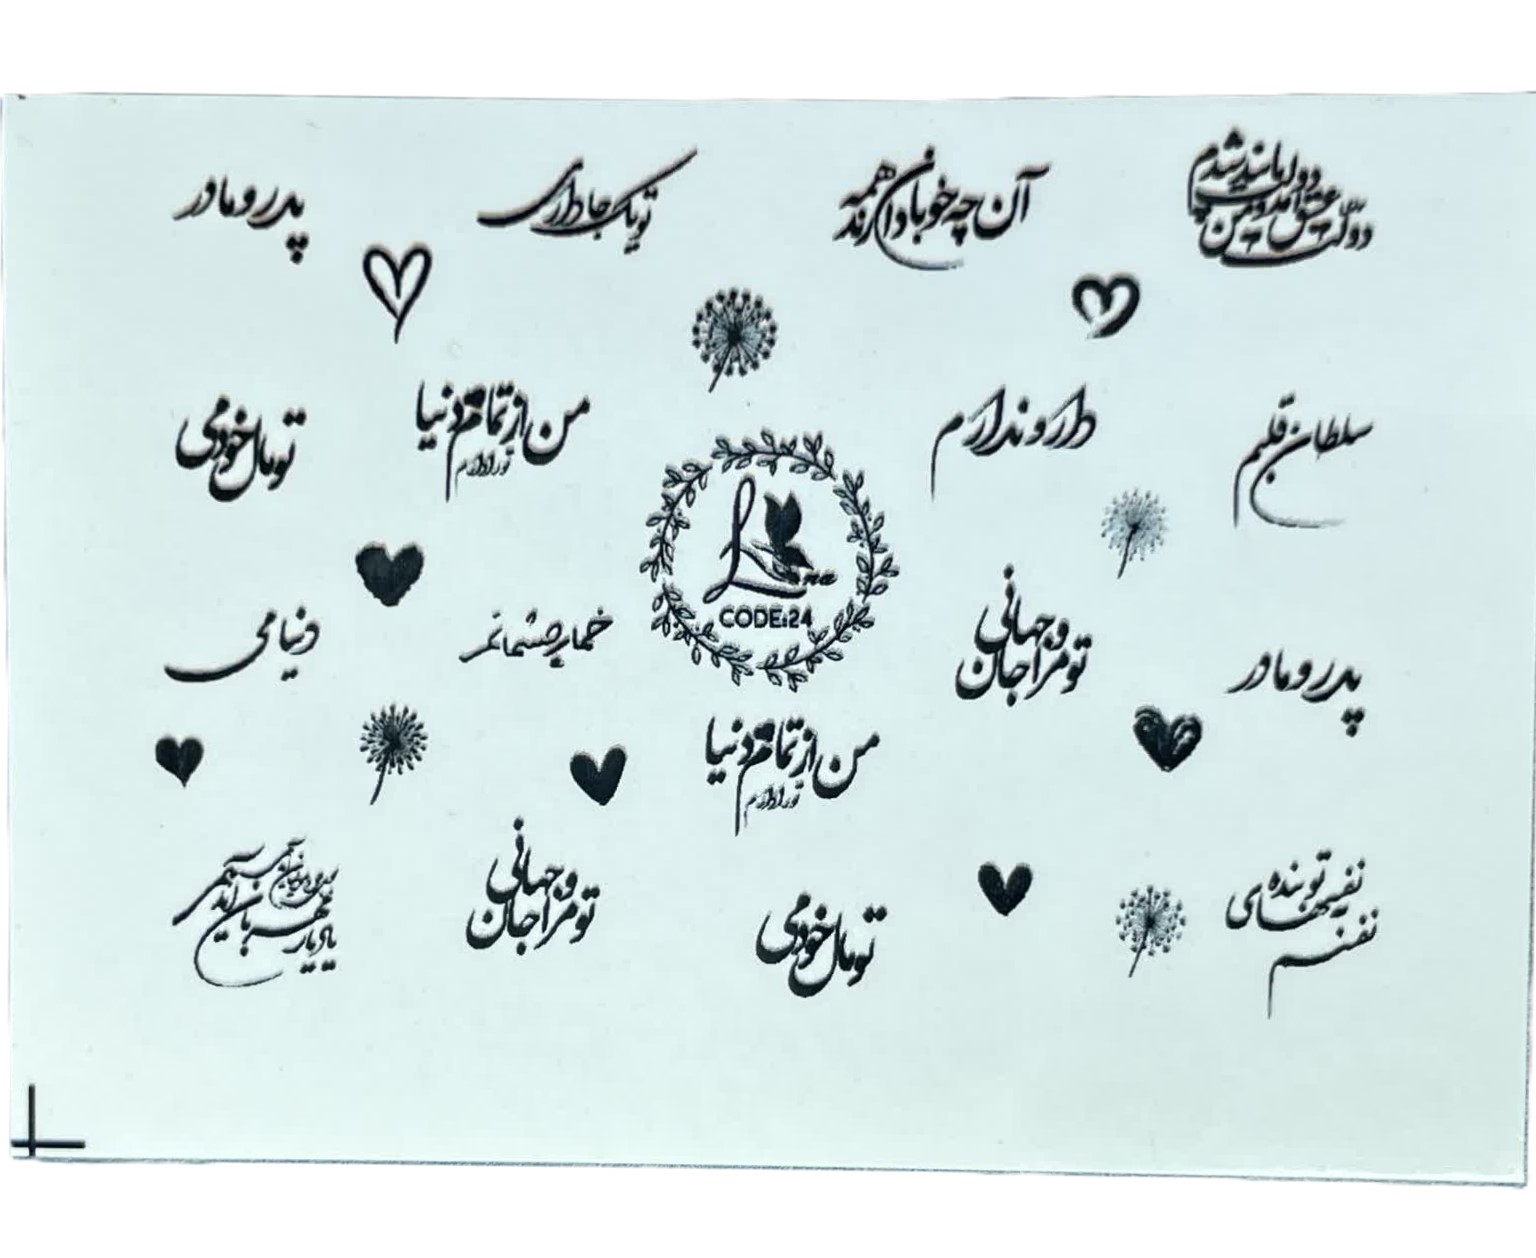 دولت عشق آمد و من
دولت پاینده شدم
آن چه خوبان همه دارند
تو یک جا داری
پدر و مادر
سلطان قلبم
دار و ندارم
من از تمام دنیا
تو را دارم
تو مال خودمی
L
CODE:24
پدر و مادر
تو مرا جان
و جهانی
خمار چشماتم
دنیامی
من از تمام دنیا
تو را دارم
نفسم
نفسهای
نفسی تو بنده
تو مال خودمی
تو مرا جان
و جهانی
یاد یار مهربان آید همی